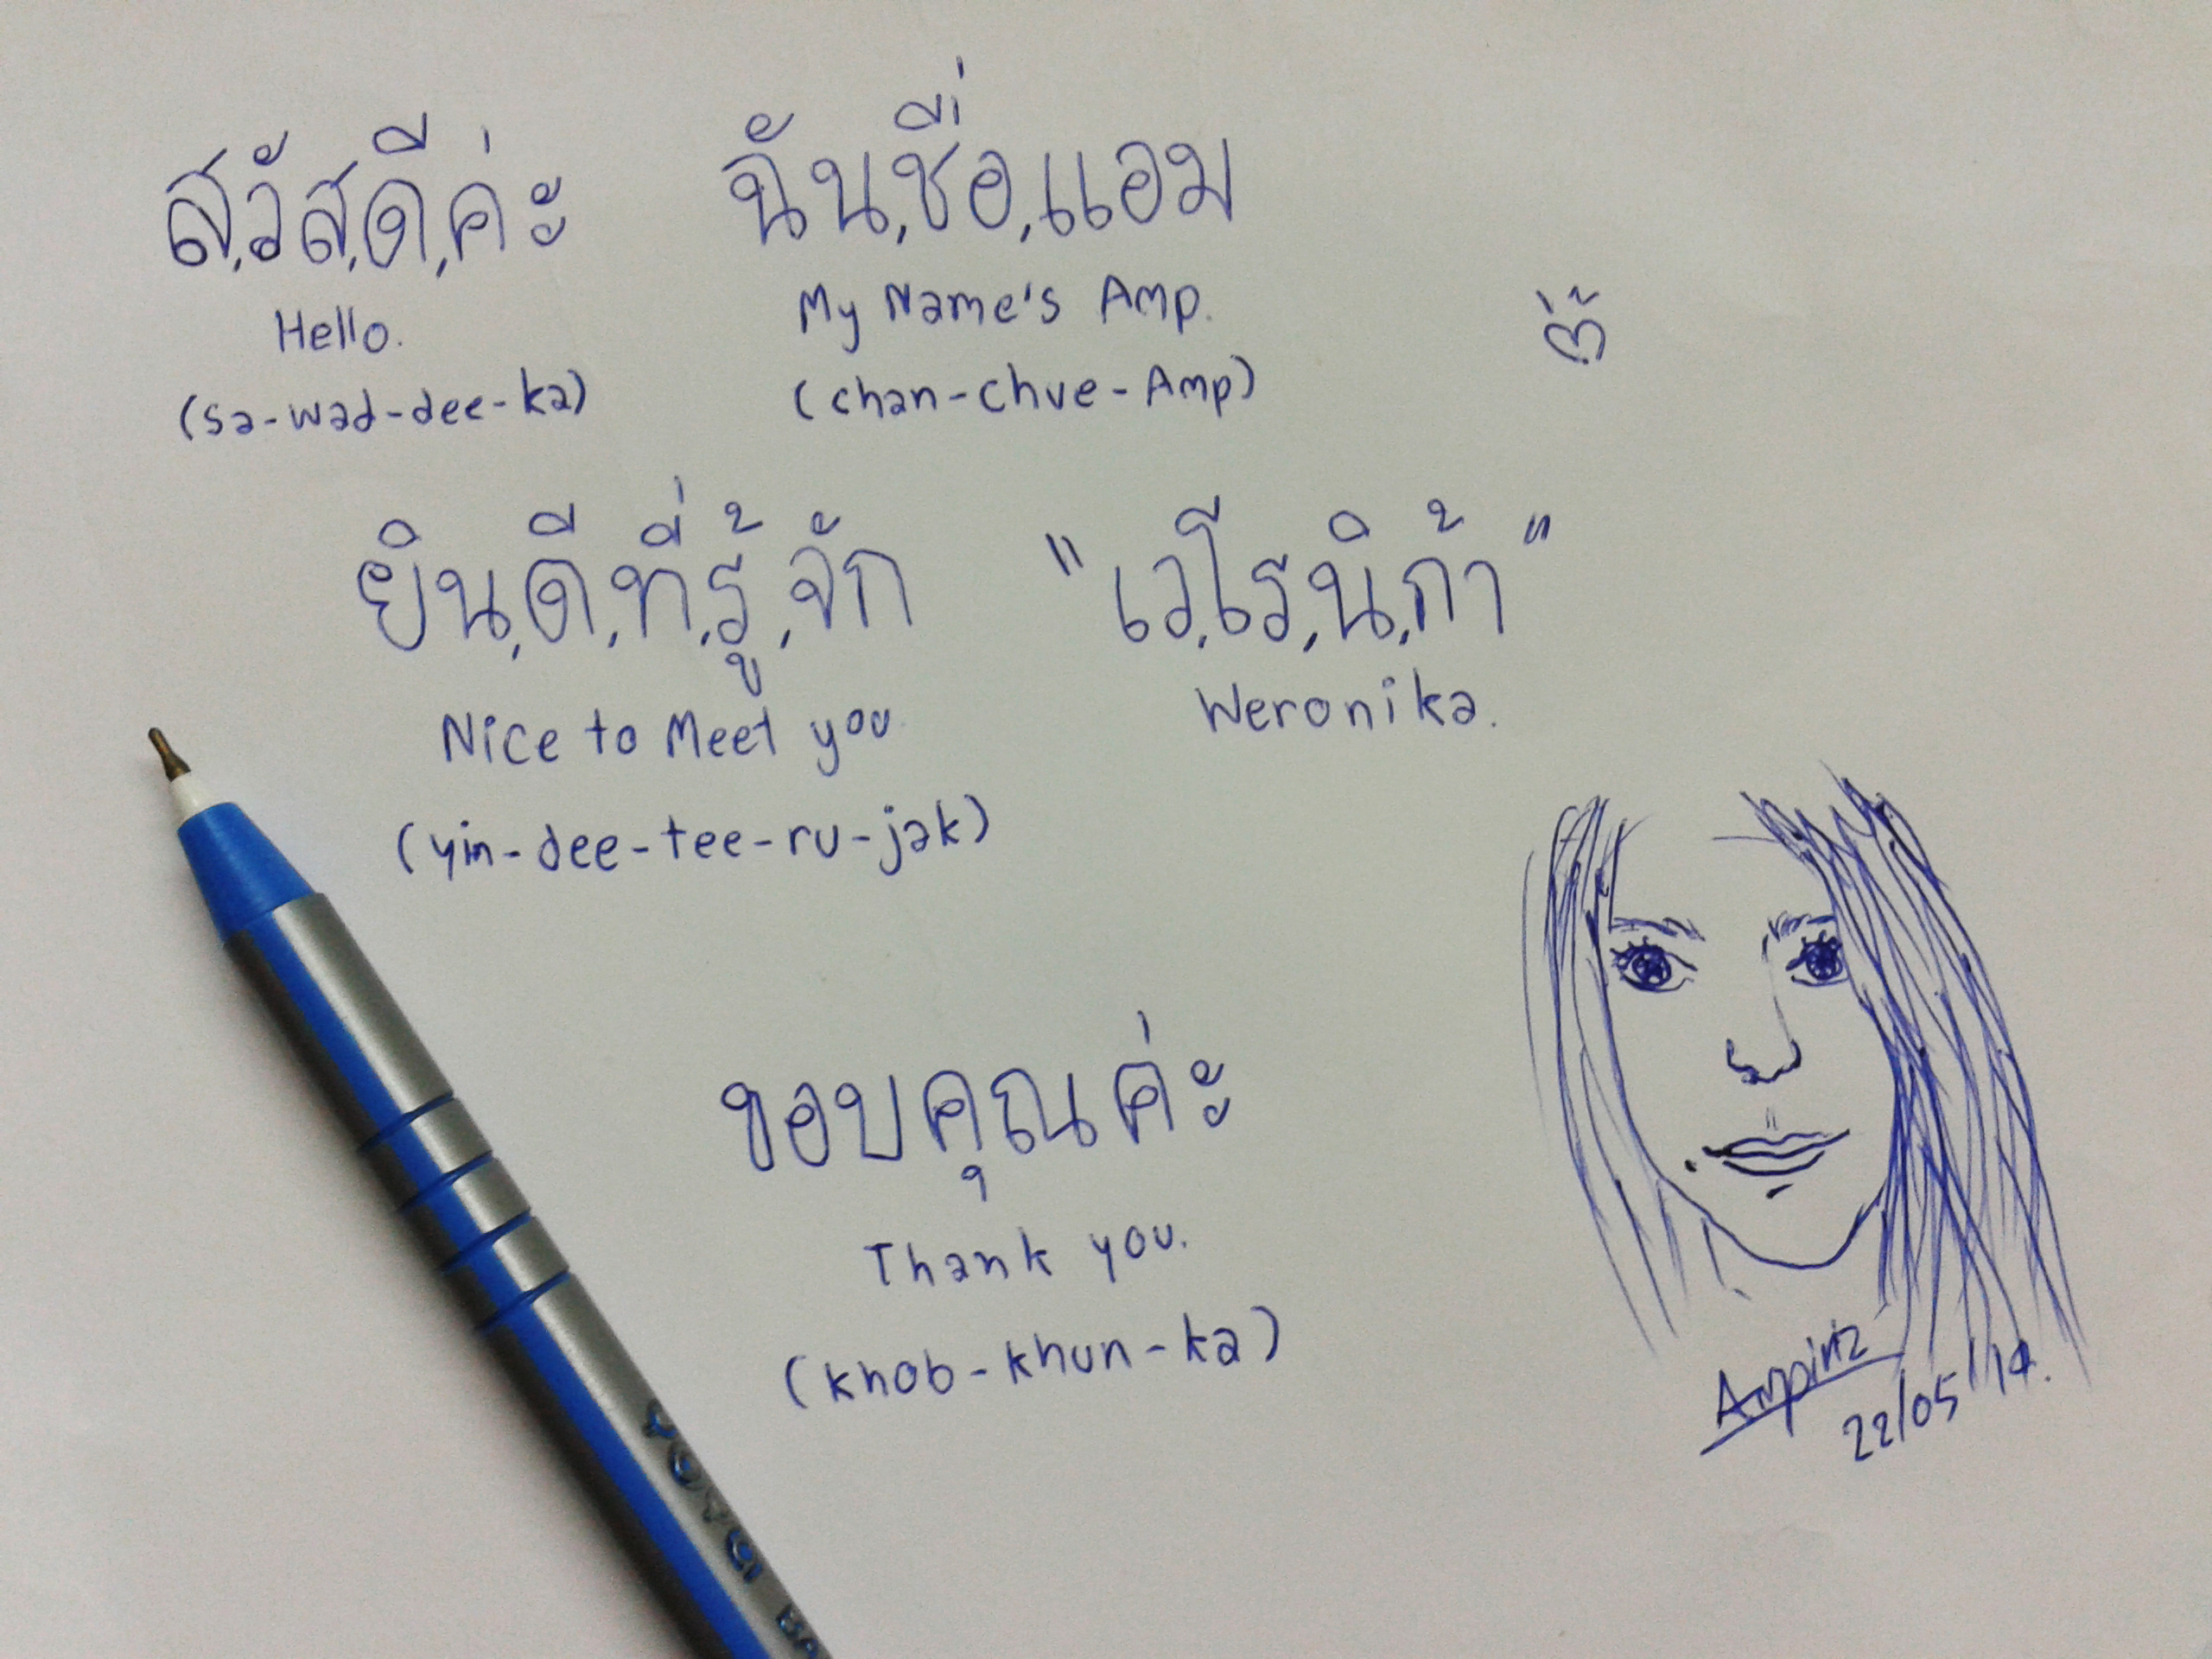 ส,วัส,ดี,ค่ะ ฉัน,ชื่อ,แอม
Hello. My Name's Amp.
(sa-wad-dee-ka) (chan-chue-Amp)
ยิน,ดี,ที่,รู้,จัก "เว,โร,นิ,ก้า"
Nice to Meet you. Weronika.
(yin-dee-tee-ru-jak)
ขอบคุณค่ะ
Thank you.
(khob-khun-ka)
22/05/14.
YOYA